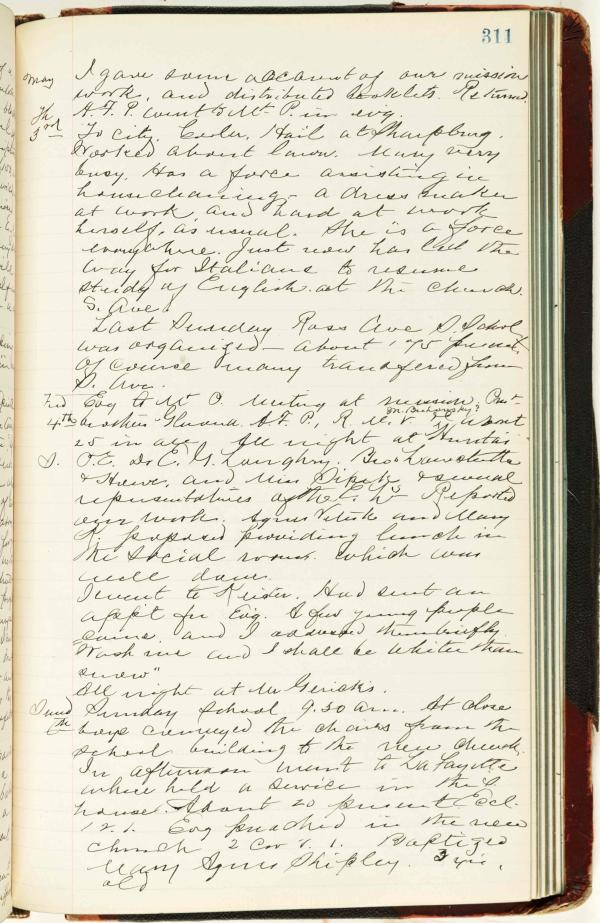 311
May I gave some account of our mission
work, and distributed booklets. Returned.
A. F. P. went to Mt. P. in evg.
Th 3rd To city. Cooler. Hail at Sharpsburg.
Worked about lawn. Mary very
busy. Has a force assisting in
housecleaning – a dress maker
at work, and hard at work
herself, as usual. She is a force
everywhere. Just now has led the
way for Italians to resume
study of English at the church.
S. Ave.
Last Sunday Ross Ave S. School
was organized – about 175 present.
Of course many transfered from
S. Ave.
Frd 4th Evg to Mt O. Meeting at mission.
A. F. P., R. M. V. about
25 in all. All night at
S. O. E. Dr E. G. Loughry, Bro
& Howe, and Miss & several
representatives of the C. Reported
over work. Agnes and Mary
K. proposed providing lunch in
the social rooms which was
well done.
I went to Keister. Had sent an
appt for Evg. A few young people
came, and I addressed them briefly.
"Wash me and I shall be whiter than
snow"
All night at Mr Gerick's.
Sund 6th Sunday School 9.30 a.m. At close
boys conveyed the chairs from the
school building to the new church.
In afternoon went to LaFayette
where held a service in the S.
house. About 20 present. Eccl.
12.1. Evg preached in the new
church 2 Cor 6.1. Baptized
Mary Agnes Shipley. 3 yrs.
old